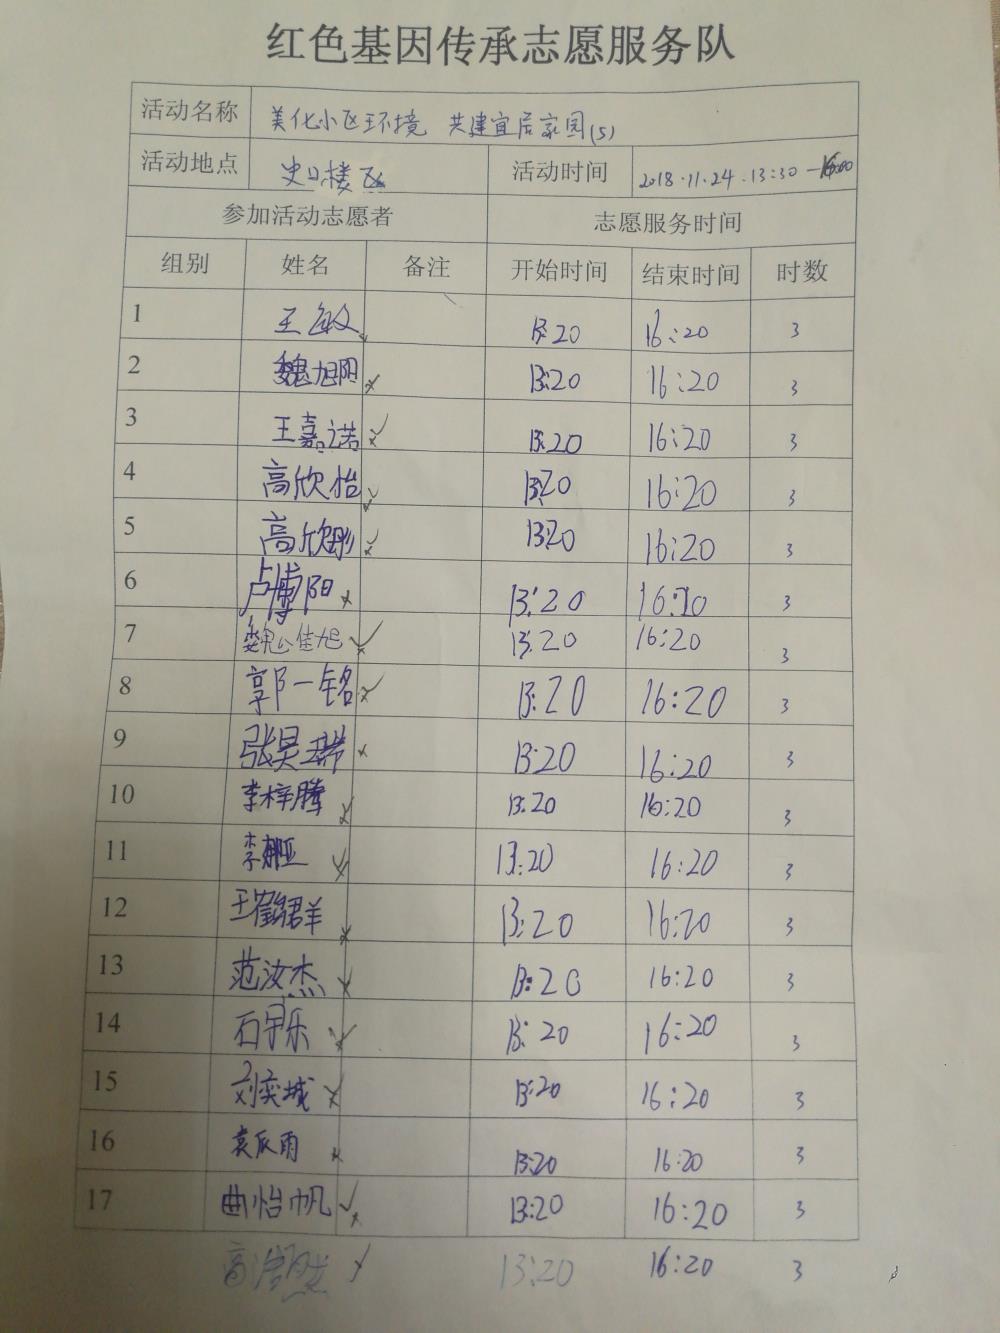 红色基因传承志愿服务队
活动名称 美化小区环境 共建宜居家园(5)
活动地点 史口楼区 活动时间 2018.11.24.13:30—16:00
参加活动志愿者 志愿服务时间
组别 姓名 备注 开始时间 结束时间 时数
1 王敏 13:20 16:20 3
2 魏旭阳 13:20 16:20 3
3 王嘉诺 13:20 16:20 3
4 高欣怡 13:20 16:20 3
5 高欣彤 13:20 16:20 3
6 卢博阳 13:20 3
7 魏公佳旭 13:20 16:20 3
8 郭一铭 13:20 16:20 3
9 张昊瑞 13:20 16:20 3
10 李梓腾 13:20 16:20 3
11 李 13:20 16:20 3
12 王 群 13:20 16:20 3
13 范汝杰 13:20 16:20 3
14 石宇乐 13:20 16:20 3
15 刘奕城 13:20 16:20 3
16 袁 雨 13:20 16:20 3
17 曲怡帆 13:20 16:20 3
高 13:20 16:20 3